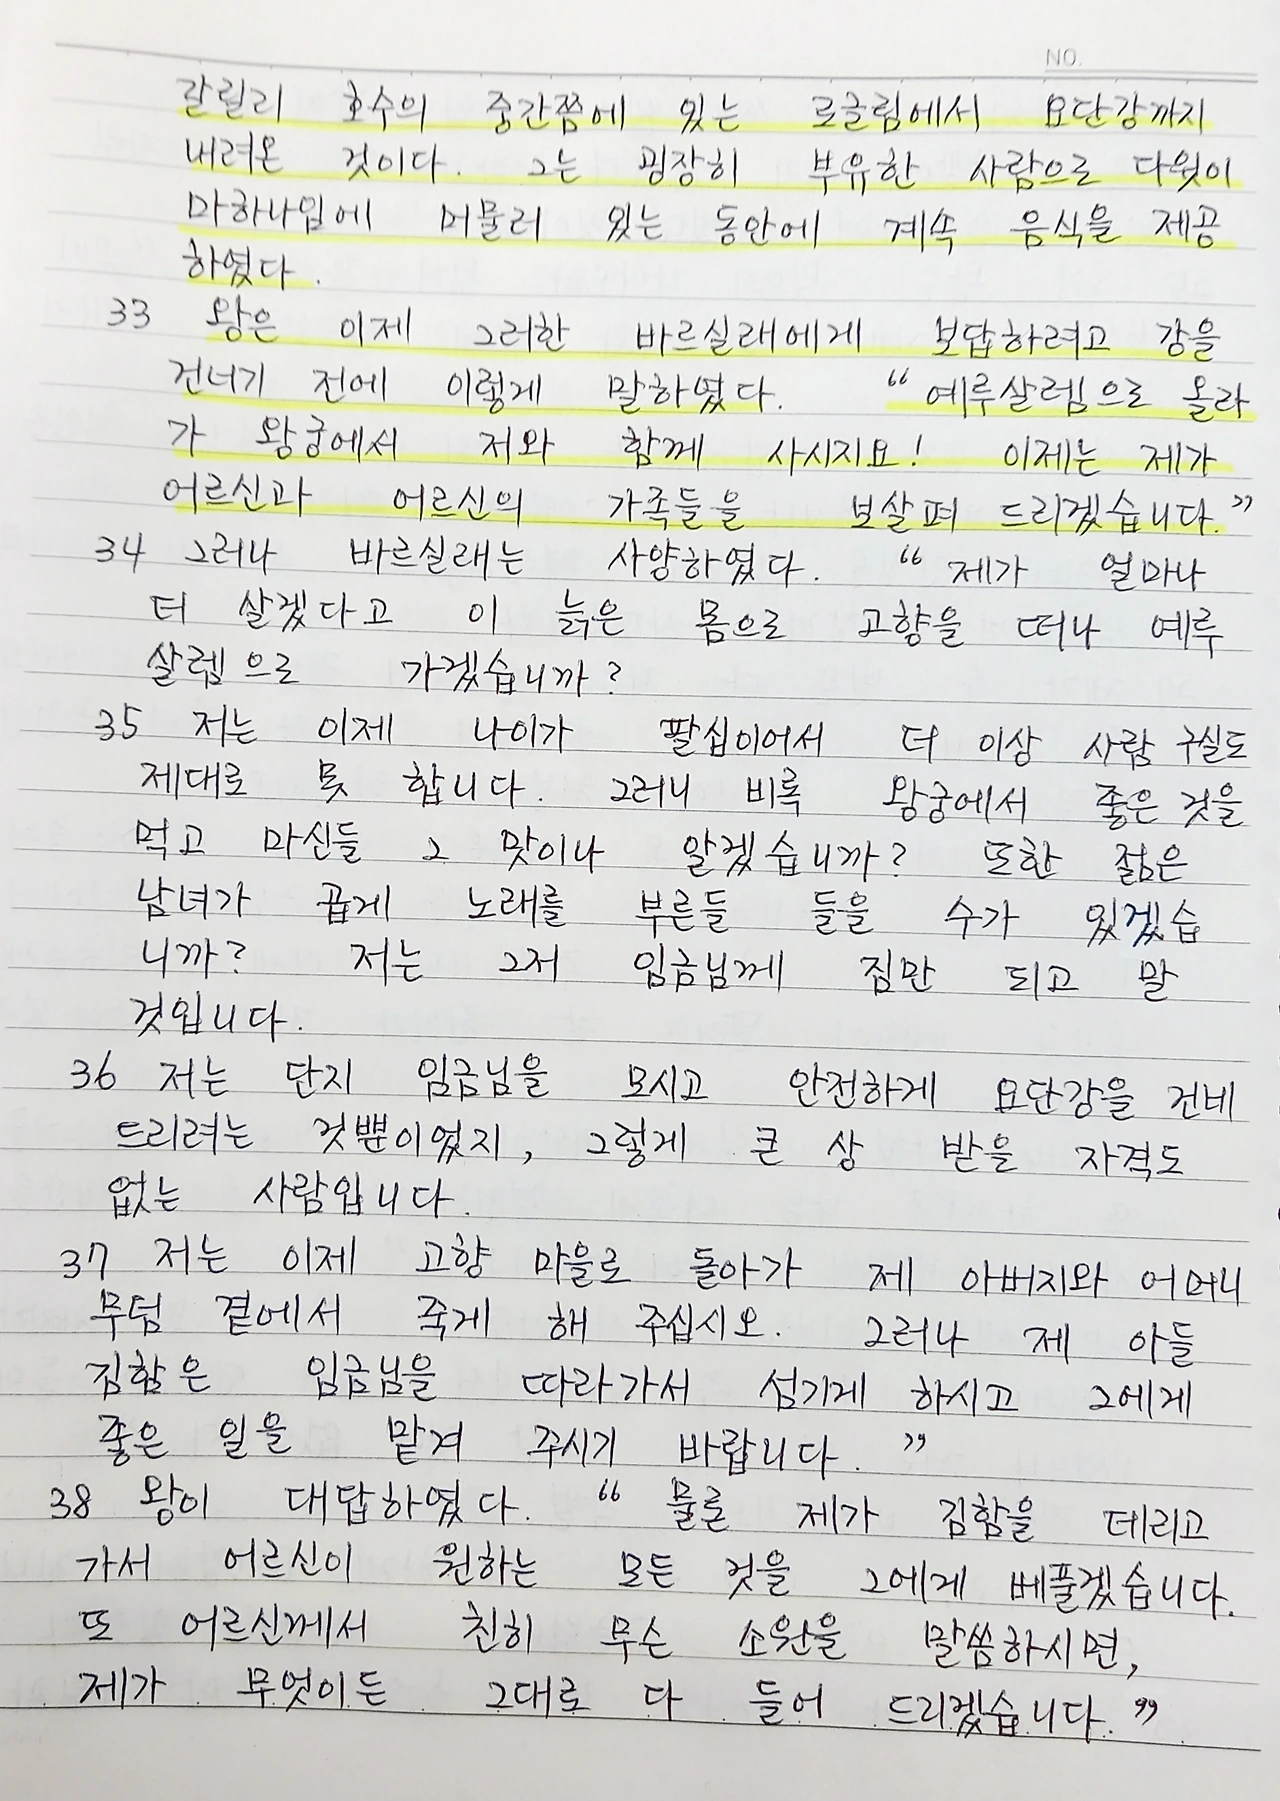 NO.
갈릴리 호수의 중간쯤에 있는 로글림에서 요단강까지
내려온 것이다. 그는 굉장히 부유한 사람으로 다윗이
마하나임에 머물러 있는 동안에 계속 음식을 제공
하였다.
33 왕은 이제 그러한 바르실래에게 보답하려고 강을
건너기 전에 이렇게 말하였다. “예루살렘으로 올라
가 왕궁에서 저와 함께 사시지요! 이제는 제가
어르신과 어르신의 가족들을 보살펴 드리겠습니다.”
34 그러나 바르실래는 사양하였다. “제가 얼마나
더 살겠다고 이 늙은 몸으로 고향을 떠나 예루
살렘으로 가겠습니까?
35 저는 이제 나이가 팔십이어서 더 이상 사람 구실도
제대로 못 합니다. 그러니 비록 왕궁에서 좋은 것을
먹고 마신들 그 맛이나 알겠습니까? 또한 젊은
남녀가 곱게 노래를 부른들 들을 수가 있겠습
니까? 저는 그저 임금님께 짐만 되고 말
것입니다.
36 저는 단지 임금님을 모시고 안전하게 요단강을 건네
드리려는 것뿐이었지, 그렇게 큰 상 받을 자격도
없는 사람입니다.
37 저는 이제 고향 마을로 돌아가 제 아버지와 어머니
무덤 곁에서 죽게 해 주십시오. 그러나 제 아들
김함은 임금님을 따라가서 섬기게 하시고 그에게
좋은 일을 맡겨 주시기 바랍니다.”
38 왕이 대답하였다. “물론 제가 김함을 데리고
가서 어르신이 원하는 모든 것을 그에게 베풀겠습니다.
또 어르신께서 친히 무슨 소원을 말씀하시면,
제가 무엇이든 그대로 다 들어 드리겠습니다.”